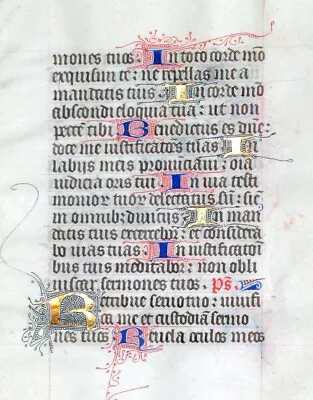 mones tuos. In toto corde mo
exquisiui te: ne repellas me a
mandatis tuis In corde mo
abscondi eloquia tua: ut non
peccẽ tibi Benedictus es dñe:
doce me iustificatões tuas In
labijs meis pronũciaui: oĩa
iudicia oris tui In uia testi
monior tuor delectatus sũ: sic
in omnib: diuicijs In man
datis tuis exercebor: et considera
bo uias tuas In iustificatõĩ
bus tuis meditabor: non obli
uiscar sermones tuos. ps
Retribue seruo tuo: uiuifi
ca me et custodiam sermo
nes tuos Reuela oculos meos